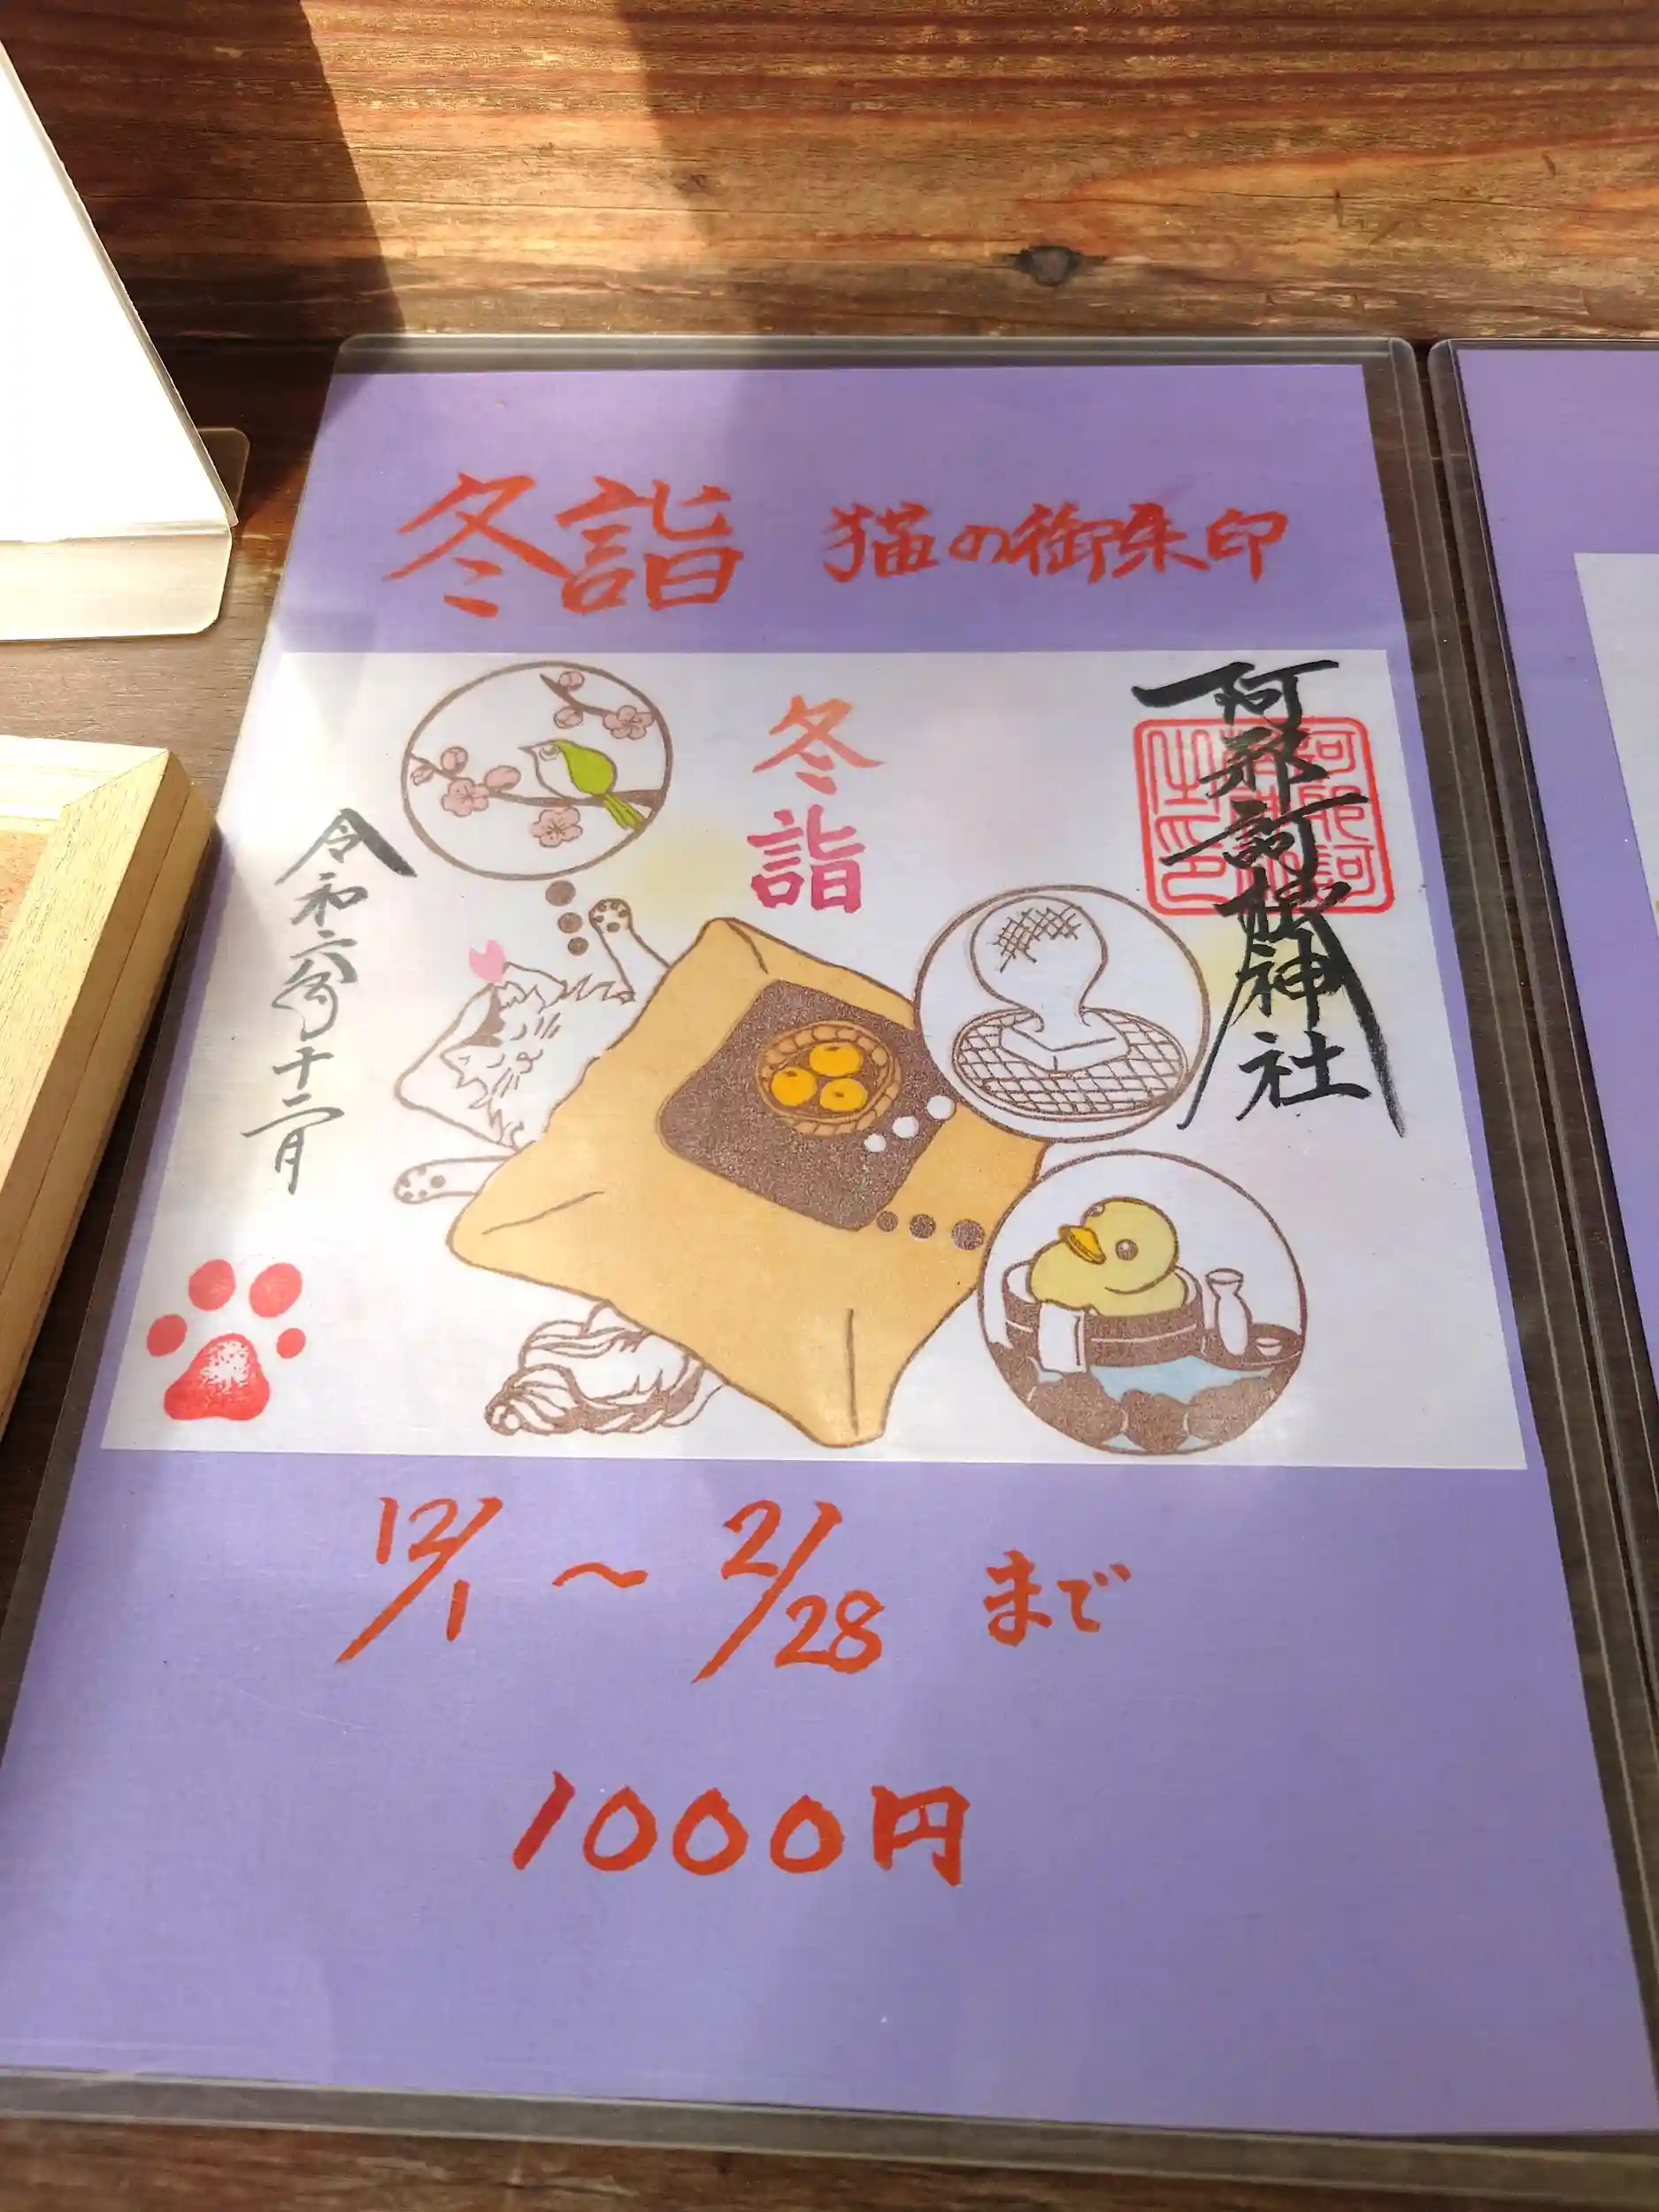 冬詣 猫の御朱印
冬詣
阿那訶根神社
令和六年十二月
12/1 ～ 2/28 まで
1000円